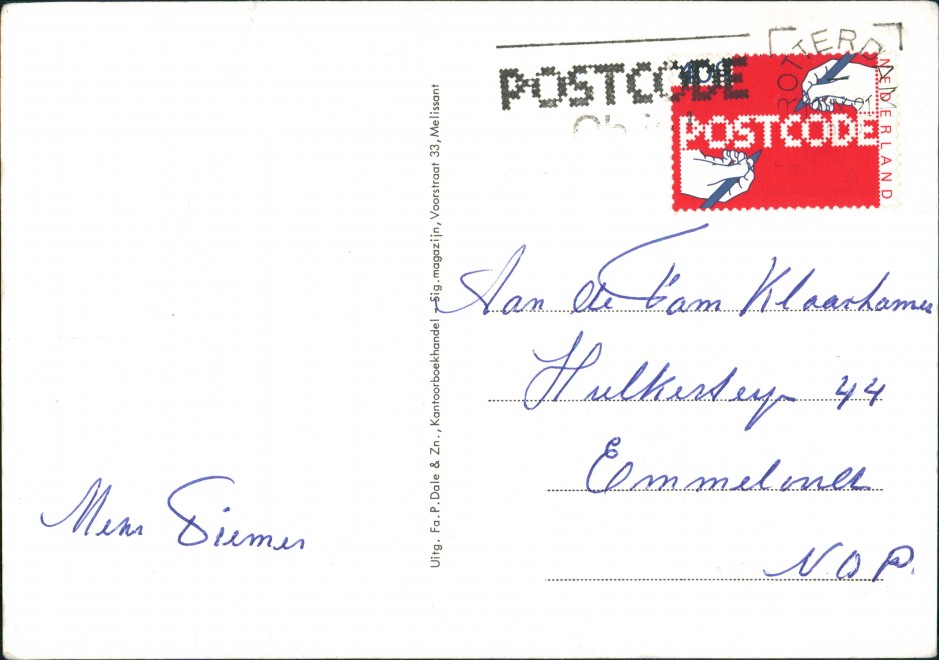 POSTCODE
ROTTERDAM
POSTCODE
NEDERLAND
Uitg. Fa. P. Dale & Zn., Kantoorboekhandel – Sig. magazijn, Voorstraat 33, Melissant
Aan de Fam Klaarhamer
44
Emmeloord
N O P.
Siemer